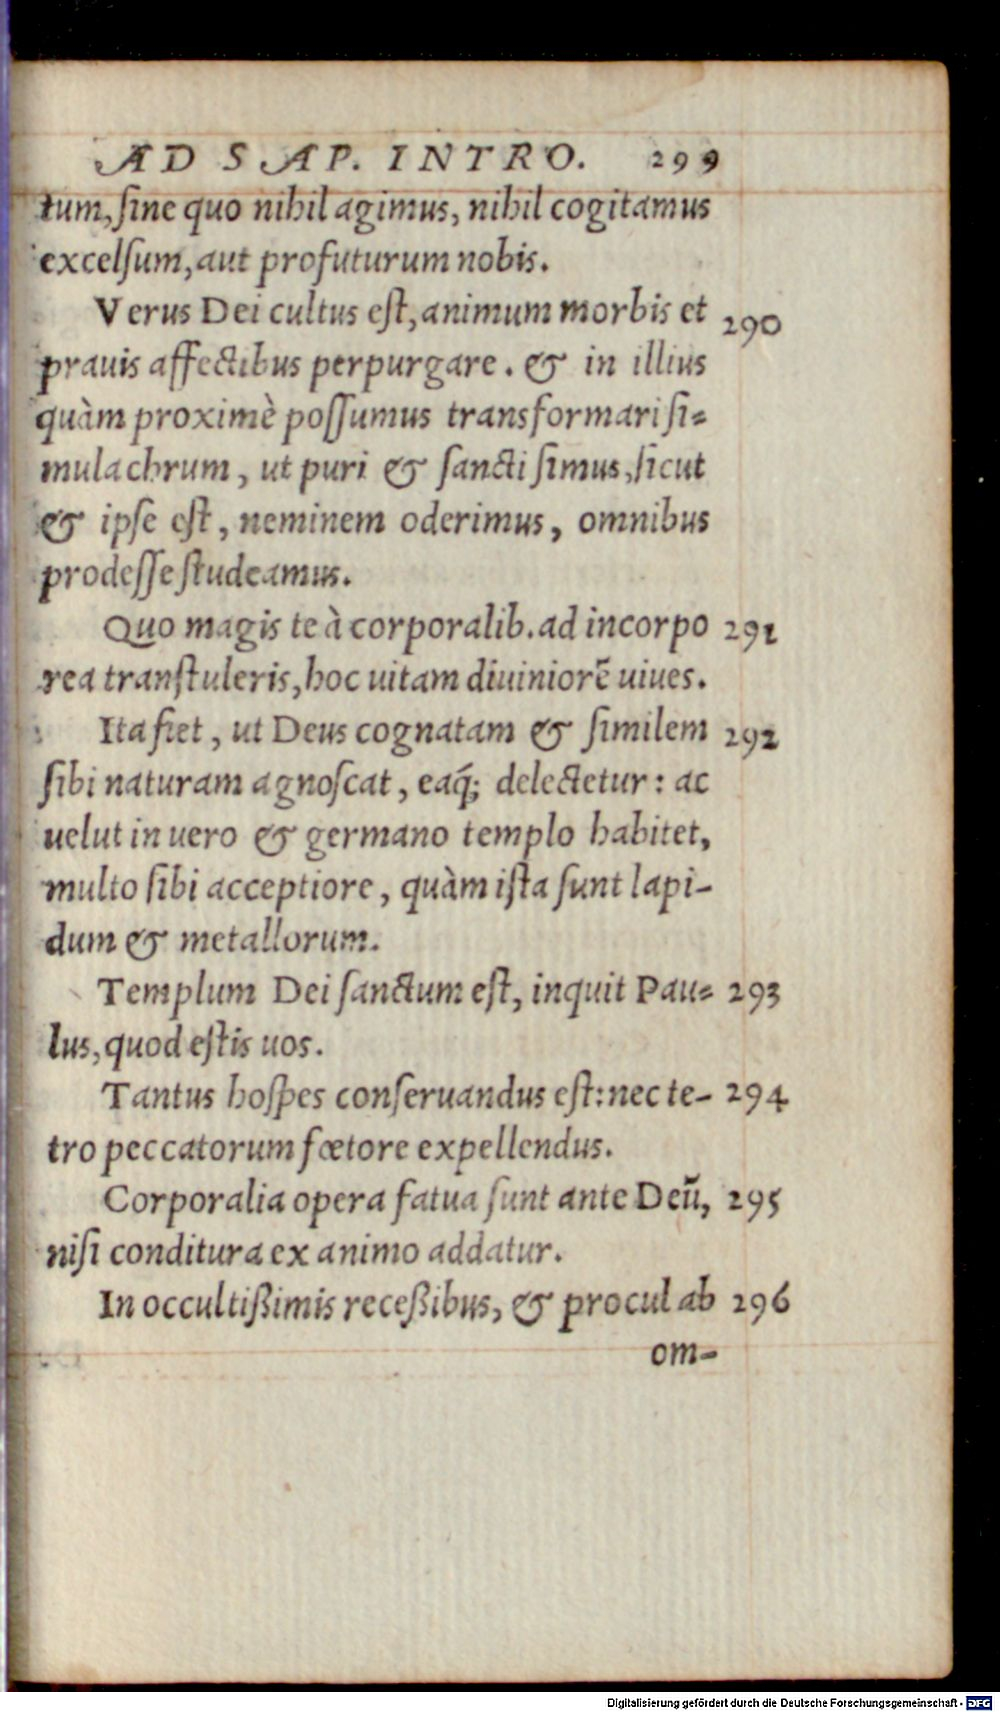 AD SAP. INTRO. 299
tum, ſine quo nihil agimus, nihil cogitamus
excelſum, aut profuturum nobis.
Verus Dei cultus eſt, animum morbis et 290
prauis affectibus perpurgare. & in illius
quàm proximè poſſumus transformari ſi=
mulachrum, ut puri & ſancti ſimus, ſicut
& ipſe eſt, neminem oderimus, omnibus
prodeſſe ſtudeamus.
Quo magis te à corporalib. ad incorpo 291
rea tranſtuleris, hoc uitam diuiniorẽ uiues.
Ita fiet, ut Deus cognatam & ſimilem 292
ſibi naturam agnoſcat, eaq́; delectetur: ac
uelut in uero & germano templo habitet,
multo ſibi acceptiore, quàm iſta ſunt lapi-
dum & metallorum.
Templum Dei ſanctum eſt, inquit Pau= 293
lus, quod eſtis uos.
Tantus hoſpes conſeruandus eſt: nec te- 294
tro peccatorum fœtore expellendus.
Corporalia opera fatua ſunt ante Deũ, 295
niſi conditura ex animo addatur.
In occultißimis receßibus, & procul ab 296
om-
Digitalisierung gefördert durch die Deutsche Forschungsgemeinschaft - DFG